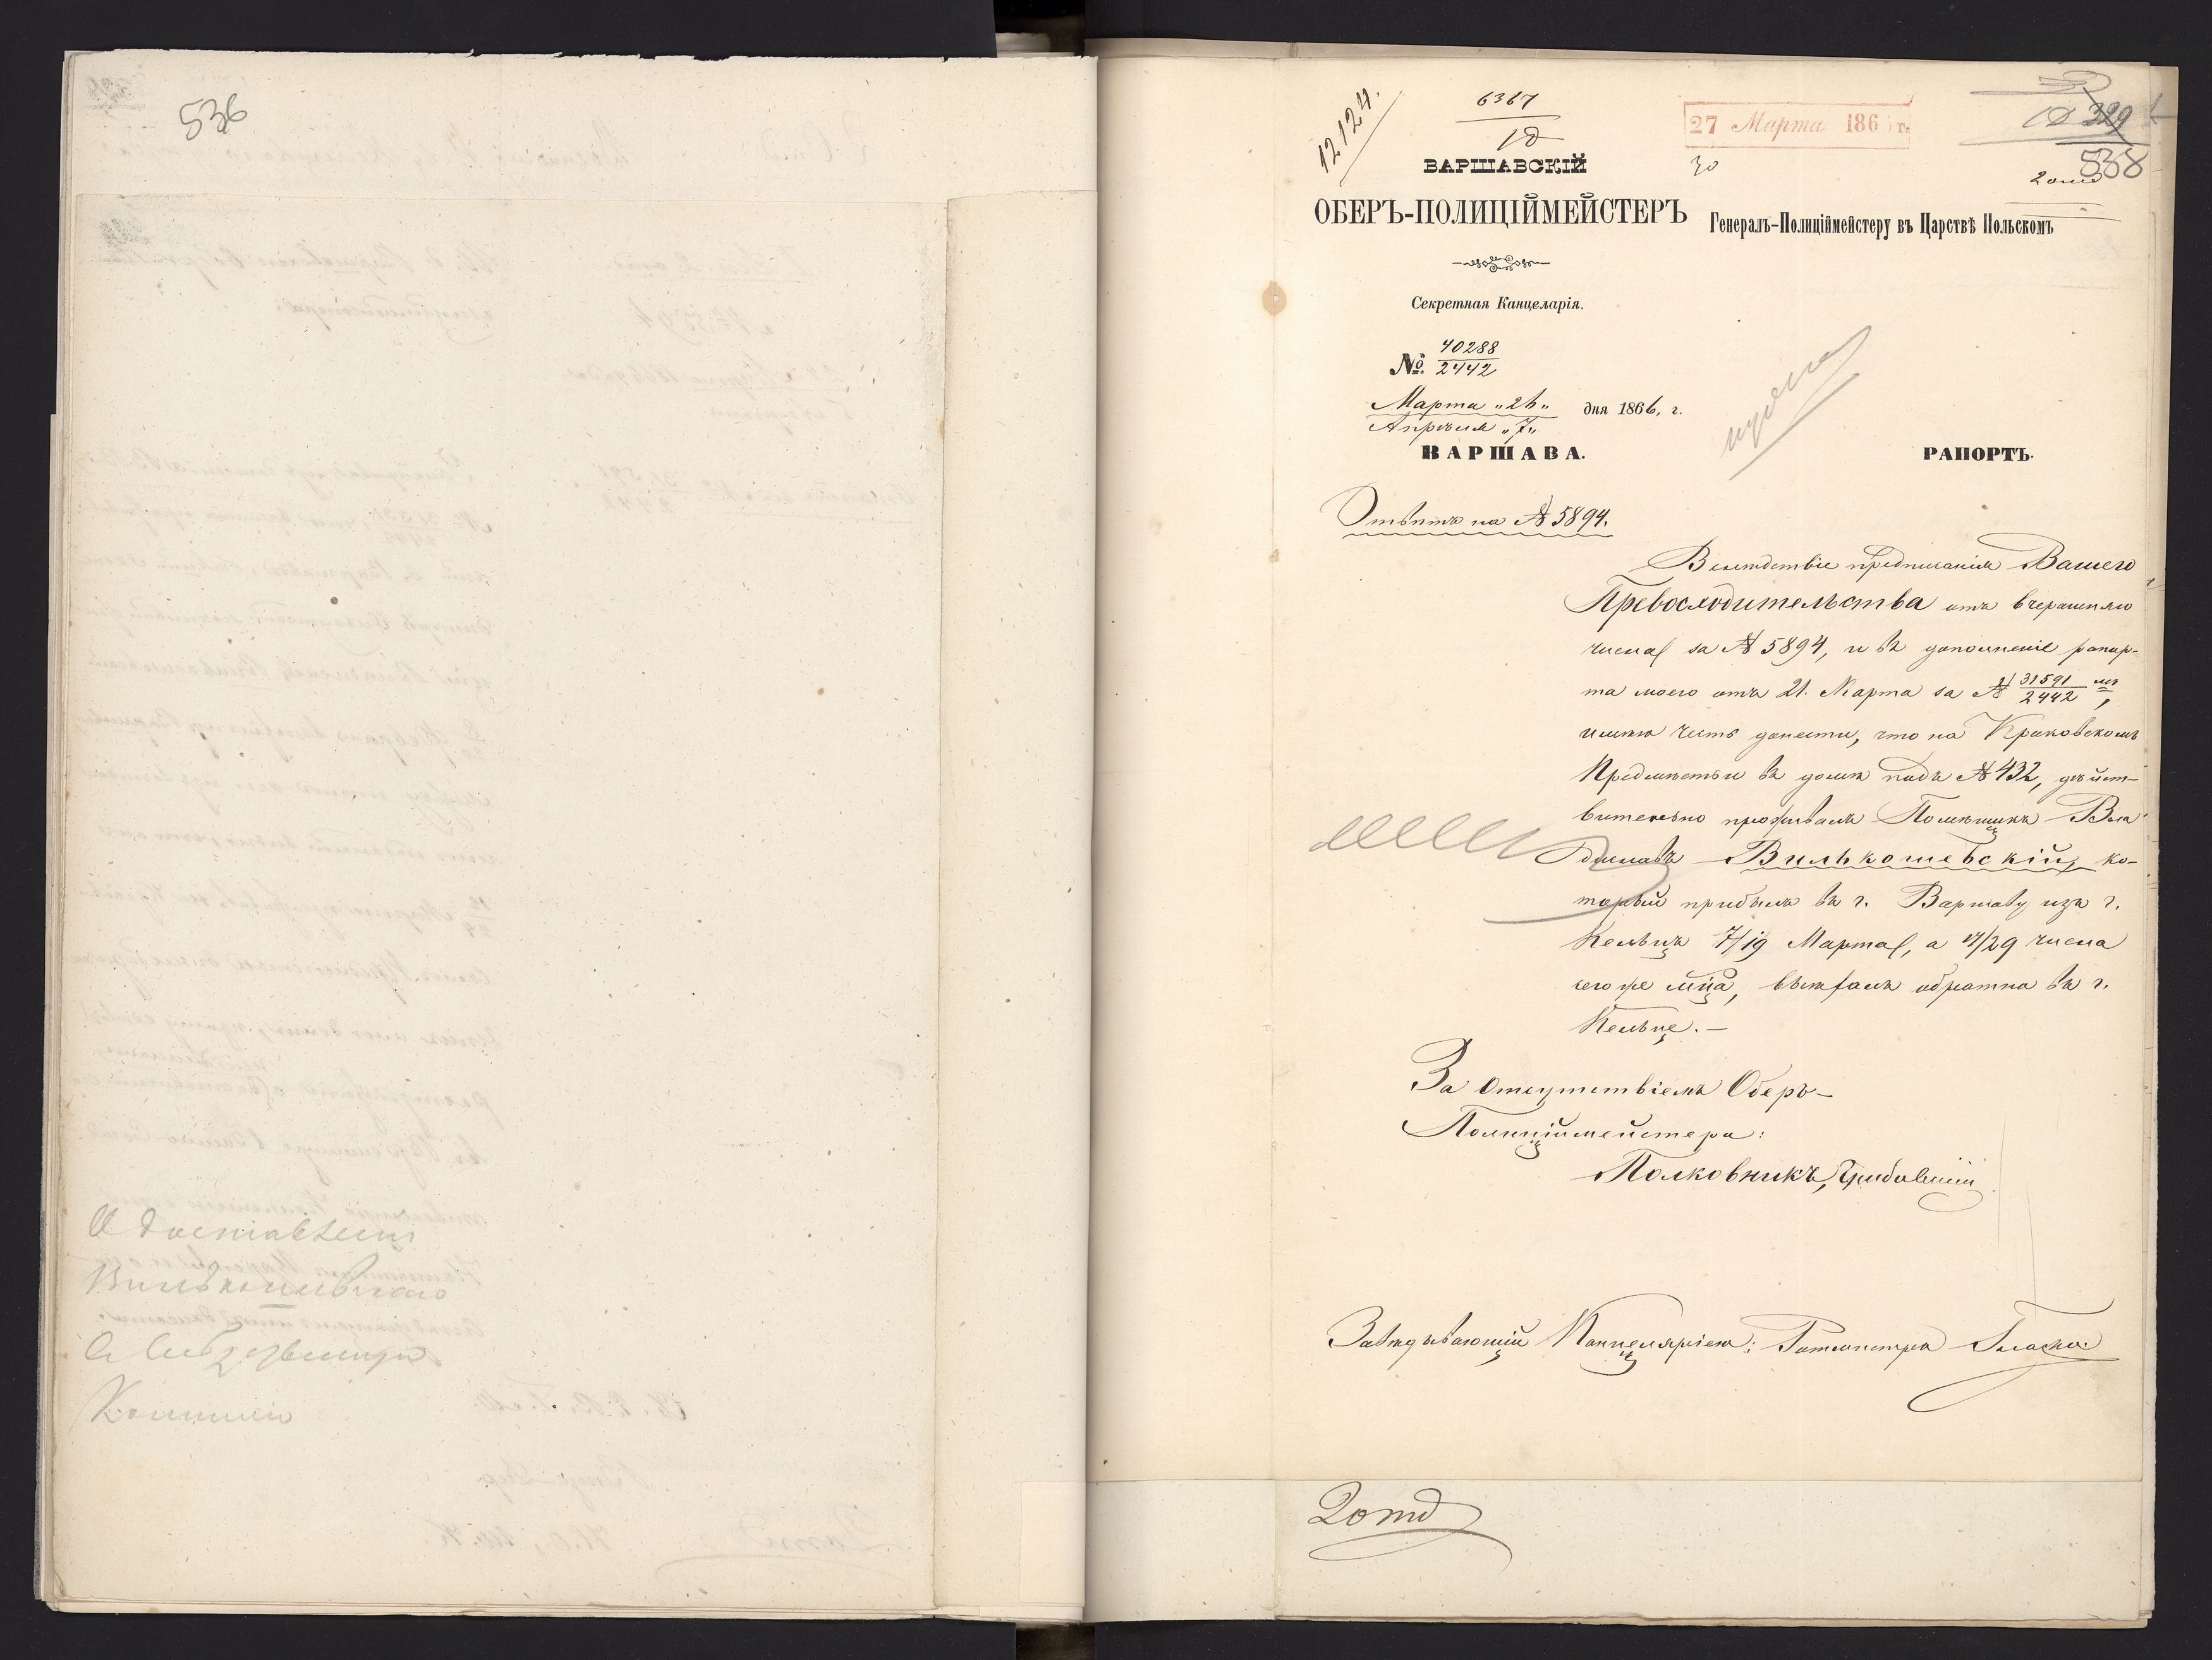 536
О доставленіи
Вилькошевскаго
Коммисіи
12124.
6367
10
27 Марта 186 г.
30
329
538
2 отд
ВАРШАВСКІЙ
ОБЕРЪ-ПОЛИЦІЙМЕЙСТЕРЪ
Генералъ-Полиціймейстеру въ Царствѣ Польскомъ
Секретная Канцелярія.
№ 40288
2442
Марта „26„ дня 1866, г.
Апрѣля „7„
ВАРШАВА.
РАПОРТЪ.
Отвѣтъ на № 5894.
Вслѣдствіе предписанія Вашего
Превосходительства отъ вчерашняго
числа за № 5894, и въ дополненіе рапор-
та моего отъ 21. Марта за № 31591/2442,
имѣю честь донести, что на Краковскомъ
Предмѣстьи въ домѣ подъ № 432, дѣйст-
вительно проживалъ Помѣщикъ Вла
диславъ Вилькошевскій, ко-
торый прибылъ въ г. Варшаву изъ г.
Кельцъ 7/19 Марта, а 17/29 числа
сего же мца, выѣхалъ обратно въ г.
Кельце.—
За Отсутствіемъ Оберъ-
Полиціймейстера:
Полковникъ,
Завѣдывающій Канцеляріею: Ротмистръ
2 отд